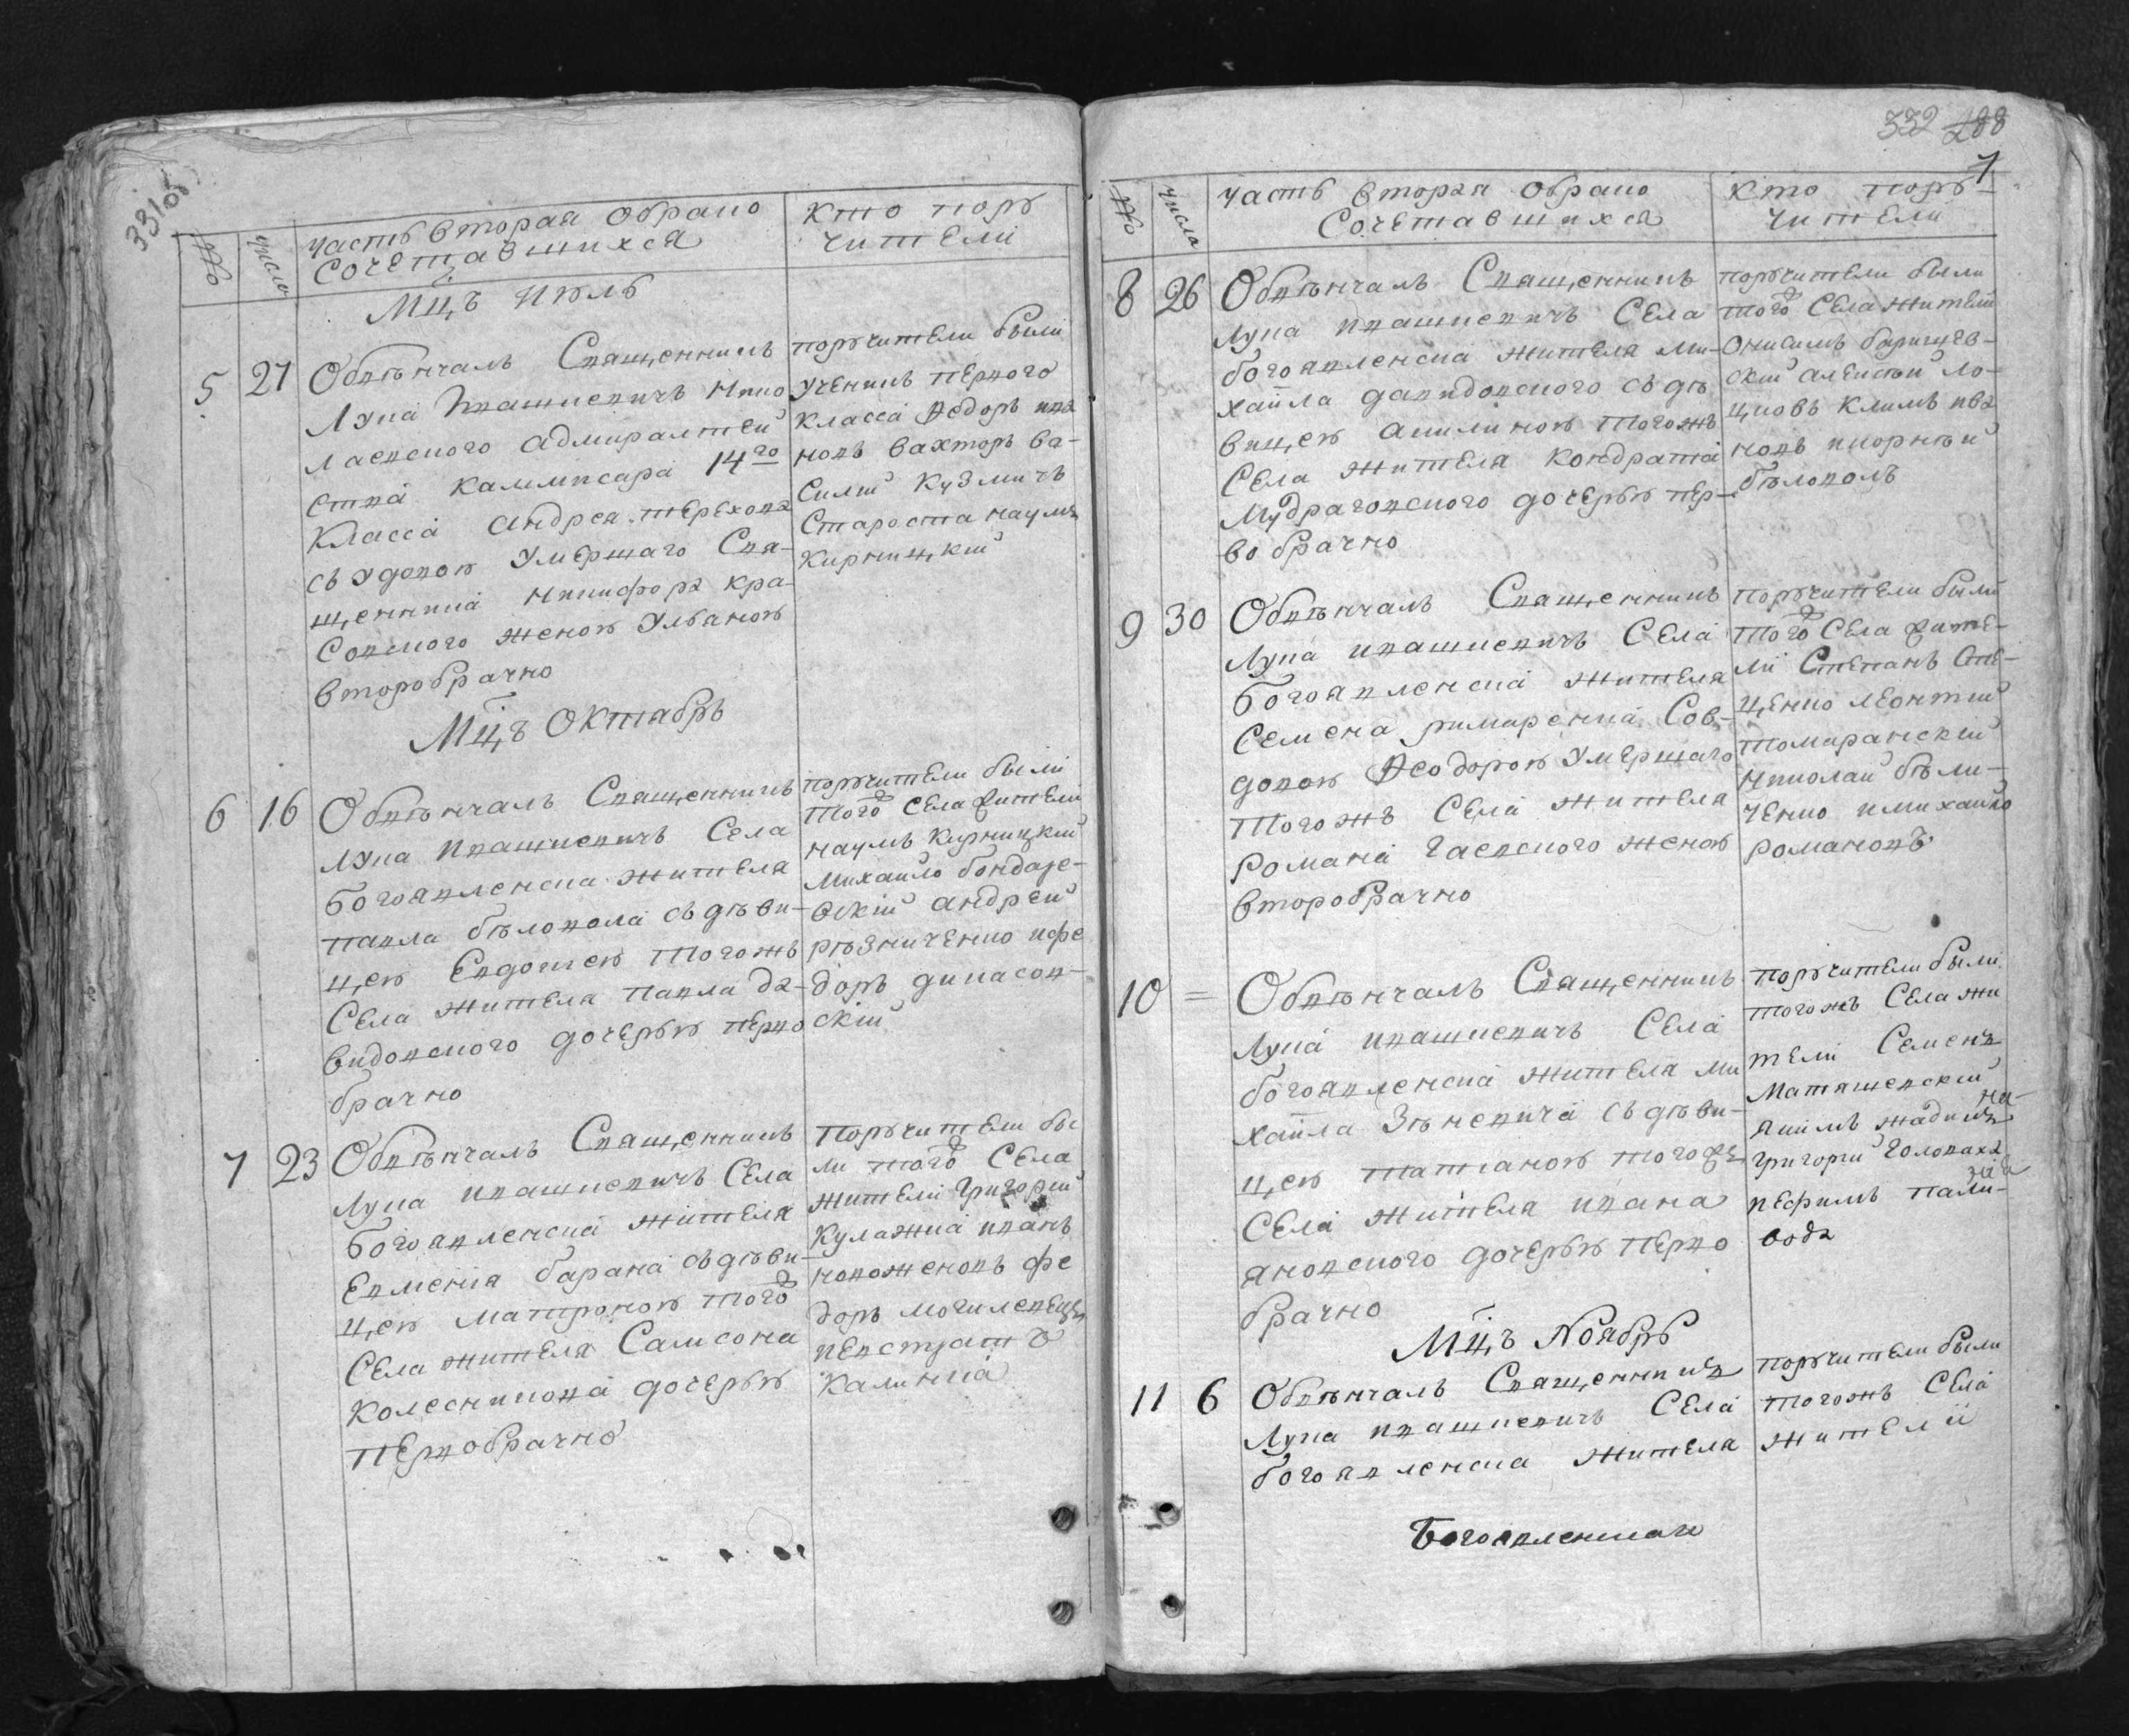 331 об
№
число
часть вторая обрачно
Сочетавшихся
кто пору
чители
Мцъ Июль
5
27
Обвѣнчалъ Священникъ
Лука Ивашкевичъ Нико
лаевского адмиралтей
ства каммисара 14го
класса андрея терехова
съ удовою умершаго Свя-
щенника Никифора кра-
совского женою Ульяною
второбрачно
поручители были
ученикъ первого
класса Ѳедоръ ива
новъ вахторъ ва-
силий Кузмичъ
Староста наумъ
Кирницкій
Мцъ Октябрь
6
16
Обвѣнчалъ Священникъ
Лука Ивашкевичъ Села
Богоявленска жителя
павла бѣловола съ дѣви-
цею Евдокіею тогожъ
Села жителя павла да-
видовского дочерью перво
брачно
поручители были
того Села жители
наумъ Кирницкий
Михайло бондаре-
вскій андрей
рѣзниченко и фе
доръ
скій
7
23
Обвѣнчалъ Священникъ
Лука ивашкевичъ Села
Богоявленска жителя
Евменія барана съ дѣви-
цею матроною того
Села жителя Самсона
Колесникова дочерью
первобрачно
Поручители бы
ли того Села
жители Григорий
Кулажка иванъ
новоженовъ фе
доръ могилевецъ
иевстратъ
Калинка
332 288
7
№
числа
часть вторая обрачно
Сочетавшихся
кто пору-
чители
8
26
Обвѣнчалъ Священникъ
Лука ивашкевичъ Села
богоявленска жителя ми-
хаила давидовского съ дѣ
вицею акилиною тогожъ
Села жителя кондрата
Мудраговского дочерью пер-
во брачно
поручители были
того Села жители
алексѣй ло-
цковъ климъ ива
новъ икорнѣй
бѣловолъ
9
30
Обвѣнчалъ Священникъ
Лука ивашкевичъ Села
Богоявленска жителя
Семена римаренка Совъ-
довою Ѳеодорою умершаго
тогожъ Села жителя
романа Гаевского женою
второбрачно
поручители были
того Села жите-
ли Степанъ Сте-
ценко леонтий
томаранскій
николай бѣли-
ченко имихайло
романовъ
10
=
Обвѣнчалъ Священникъ
Лука ивашкевичъ Села
богоявленска жителя ми
хаила Зѣневича съ дѣви-
цею татіаною тогожъ
Села жителя ивана
яновского дочерью перво
брачно
поручители были
тогожъ Села жи
тели Семенъ
Маташевскій
григорий Голованъ
иефимъ пали-
вода
Мцъ Ноябрь
11
6
Обвѣнчалъ Священникъ
Лука ивашкевичъ Села
богоявленска жителя
поручители были
тогожъ Села
жители
Богоявленская